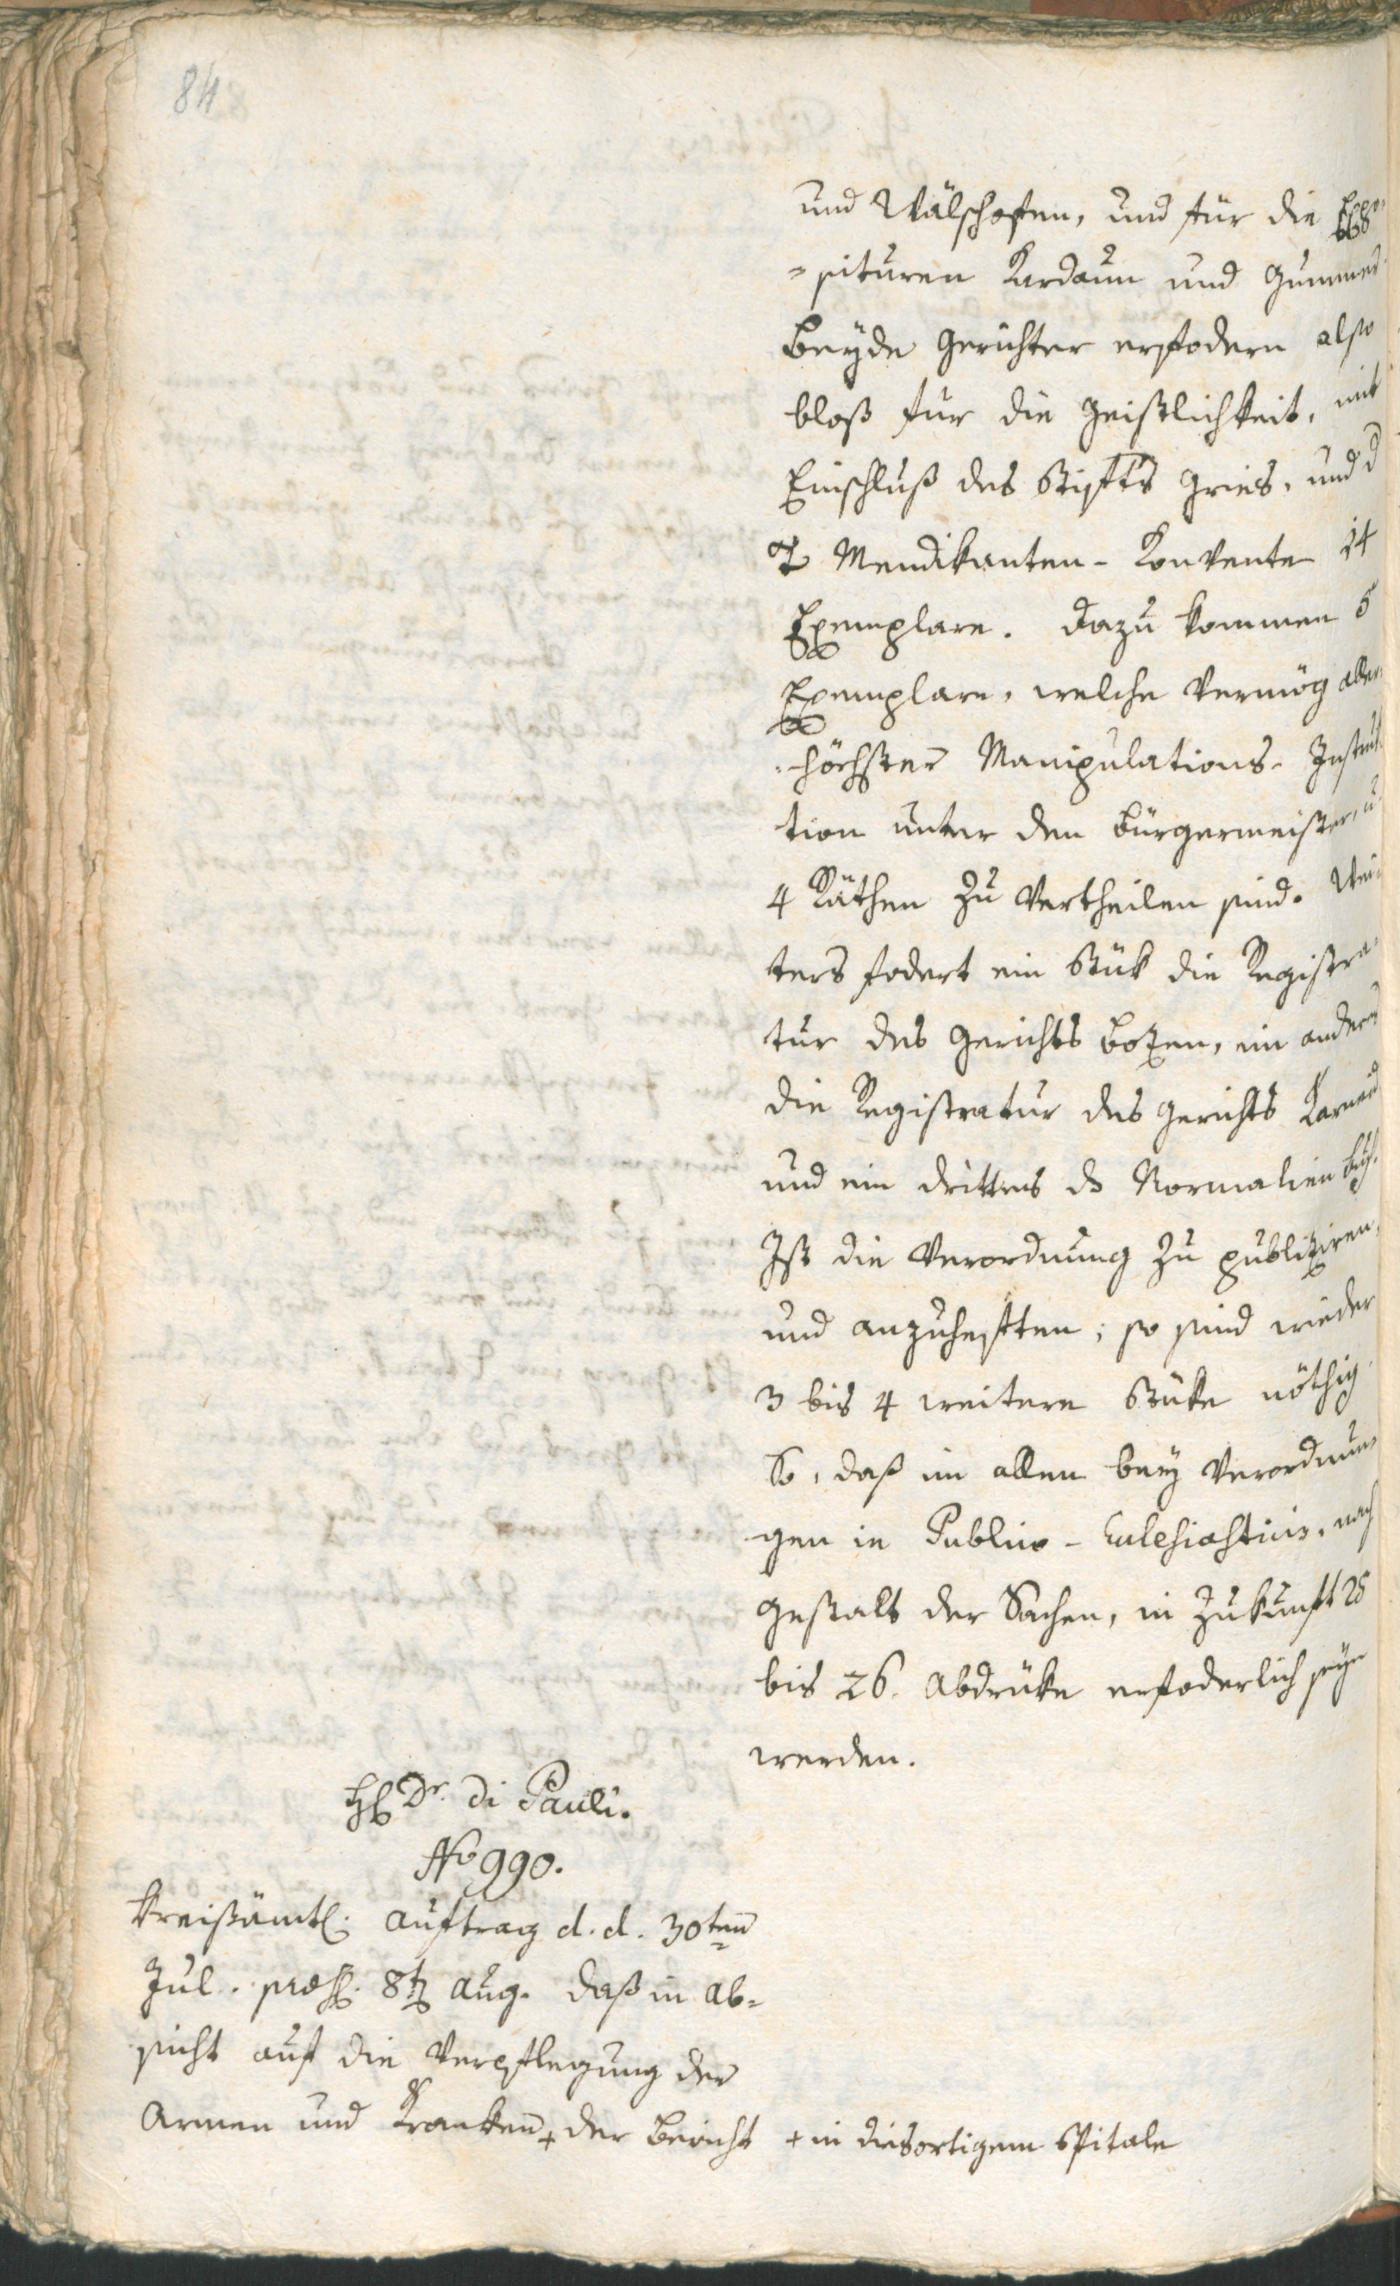 84
und Wälschofen, und für die Expo=
=situren Kardaun und Gummer.
Beyde Gerichter erfodern also
bloß für die Geistlichkeit, mit
Einschluß des Stiftts Gries, und d
2 Mendikanten-Konvente 14
Exemplare. Dazu kommen 5
Exemplare, welche vermög aller=
höchster Manipulations-Instruk=
tion unter den Bürgermeister, u.
4 Räthen zu vertheilen sind. Wei=
ters fodert ein Stük die Registra=
tur des Gerichts Bozen, ein anders
die Registratur des Gerichts Karneid
und ein drittes das Normalien Buch.
Ist die Verordnung zu publiziren,
und anzuheftten; so sind wieder
3 bis 4 weitere Stüke nöthig
So, daß im allen bey Verordnun=
gen in Publico-Ecclesiasticis, nach
Gestalt der Sachen, in Zukunft 25
bis 26. Abdrüke erfoderlich seyn
werden.
H. Dr. di Pauli.
No 990.
Kreißämtl. Auftrag d. d. 30ten
Jul. præs. 8t Aug. daß in Ab=
sicht auf die Verpflegung der
Armen und Kranken + der Bericht + in diesortigem Spitale